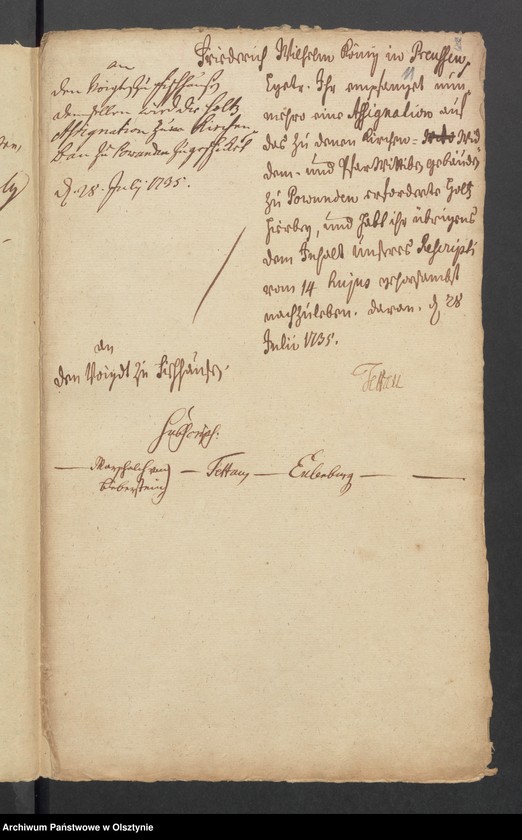 an
den Voigt zu Fischhausen
demselben wird die Holtz
Assignation zum Kirchen-
bau zu Powunden zugeschickt
d. 28. July 1735.
Friederich Wilhelm König in Preussen,
Ihr empfanget nun-
mehro eine Assignation auf
das zu denen Kirchen- Wid-
dem- und Pfar Wittben gebäuden
zu Powunden erforderte Holtz
hierbey, und habt ihr übrigens
dem Inhalt unseres Rescripti
vom 14 hujus gehorsambst
nachzuleben. Daran. d 28
Julii 1735.
Tettau
an
den Voigdt zu Fischhausen.
Subscript:
Tettau Eulenburg
Archiwum Państwowe w Olsztynie